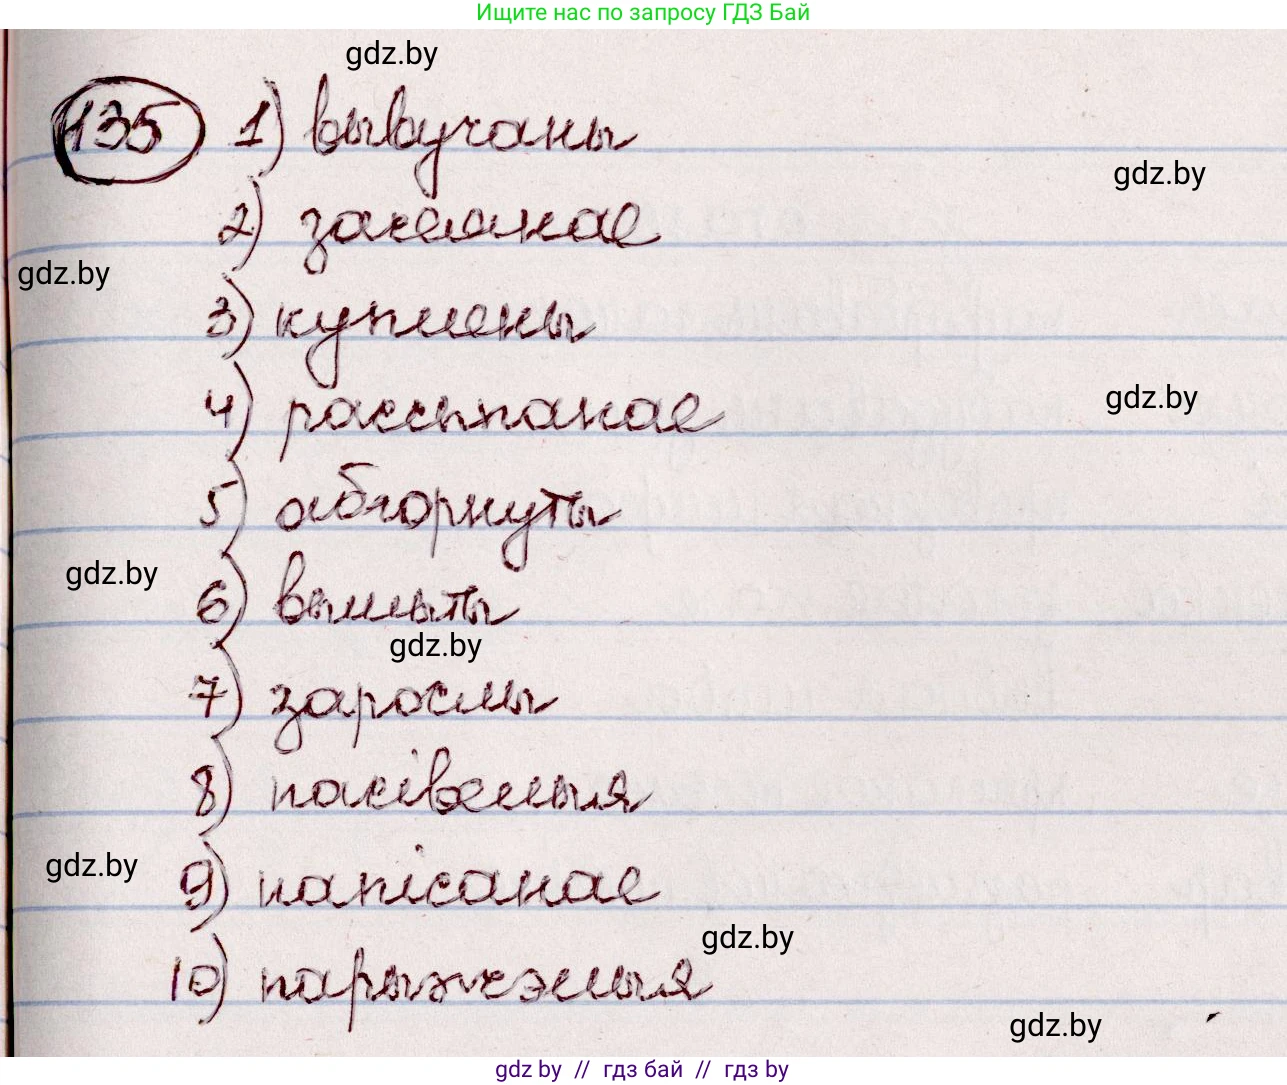 Ищите нас по запросу ГДЗ Бай
gdz.by
135 1) вывучаны
gdz.by
2) засеянае
gdz.by
3) куплены
4) рассыпанае
gdz.by
5) абгорнуты
gdz.by
6) вымыты
gdz.by
7) зарослы
8) пасівелыя
gdz.by
9) напісанае
gdz.by
10) парыжэлыя
gdz.by
gdz.by // гдз бай // гдз by